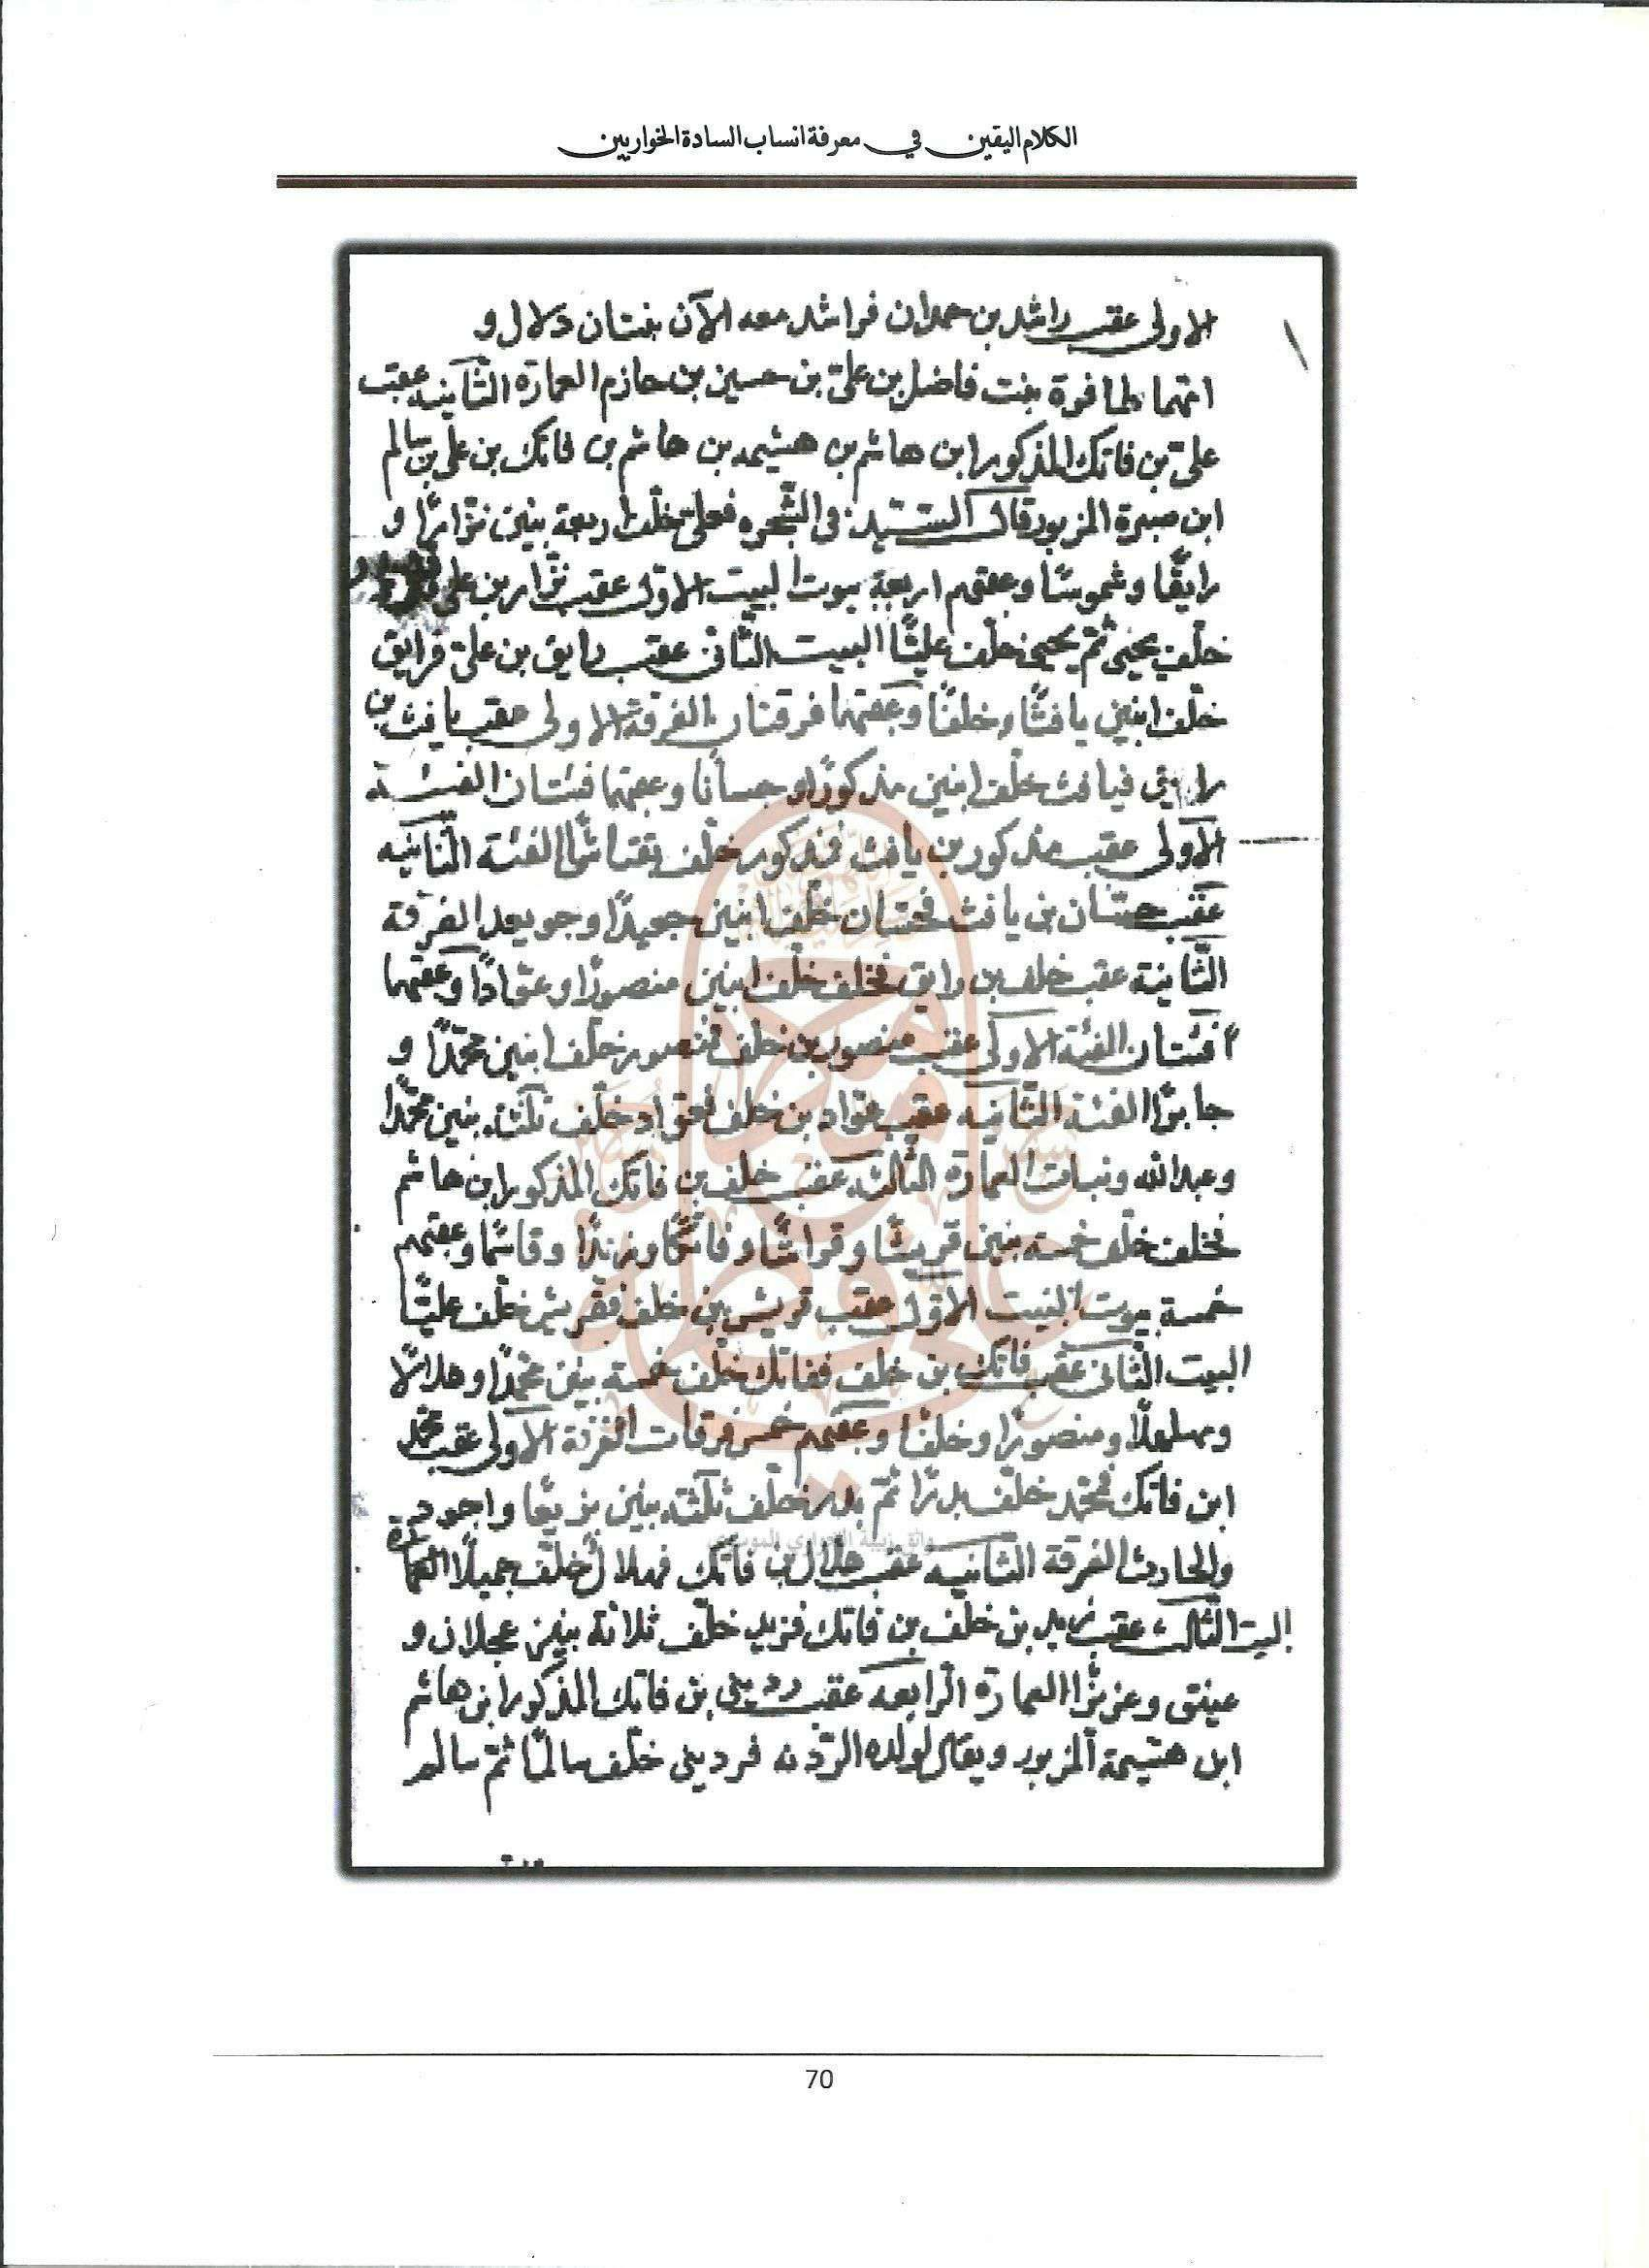 الكلام اليقين في معرفة انساب السادة الخواريين
الاولى عقب راشد بن حمدان فراشد معه الآن بنتان دلال و
امهما فاضل بن على بن حسين بن حازم العمارة الثانيه عقب
على بن فاتك المذكور ابن هاشم بن هشيمه بن هاشم بن فاتك بن على بن سالم
ابن صبرة المزبور قال السيد في الشجره فعلى خلف اربعة بنين نزارًا و
رايقًا وشموسًا وعقبهم اربعة بيوت البيت الاول عقب نزار بن على
خلف يحيى ثم يحيى خلف عليًّا البيت الثانى عقب رايق بن على فرايق
خلف ابنين يافثًا وخلفًا وعقبهما فرقتان الفرقة الاولى عقب يافث بن
رايق فيافث خلف ابنين مذكورًا وجسانا وعقبهما فئتان الفئة
الاولى عقب مذكور بن يافث فمذكور خلف الفئة الثانيه
عقب بن يافث خلف ابنين جعيدًا وجويعد الفرقة
الثانية عقب خلف بن رايق فخلف خلف ابنين منصورًا وعوّادًا وعقبهما
فئتان الفئة الاولى عقب منصور بن خلف فمنصور خلف ابنين محمّدًا و
جابرًا الفئة الثانيه عقب عوّاد بن خلف فعوّاد خلف ثلثة بنين محمّدًا
وعبدالله ونبات العمارة الثالثه عقب خلف بن فاتك المذكور ابن هاشم
فخلف خلف خمسه بنين قريشًا وقراشًا وفاتكًا وزيدًا وقاسمًا وعقبهم
خمسة بيوت البيت الاول عقب قريش بن خلف فقريش خلف عليًّا
البيت الثانى عقب فاتك بن خلف ففاتك خلف خمسة بنين محمّدًا وهلالًا
وبهلولًا ومنصورًا وخلفًا وعقبهم خمس فرقات الفرقة الاولى عقب محمد
ابن فاتك فمحمّد خلف بدرًا ثم بدر خلف ثلثة بنين واجود
والحارث الفرقة الثانيه عقب هلال بن فاتك فهلال خلف جميلًا العمارة
البيت الثالث عقب زيد بن خلف بن فاتك فزيد خلف ثلاثة بنين عجلان و
عينق وعزيزًا العمارة الرابعه عقب ردينى بن فاتك المذكور ابن هاشم
ابن هشيمة المزبور ويقال لولده الردنه فردينى خلف سالمًا ثم سالم
70